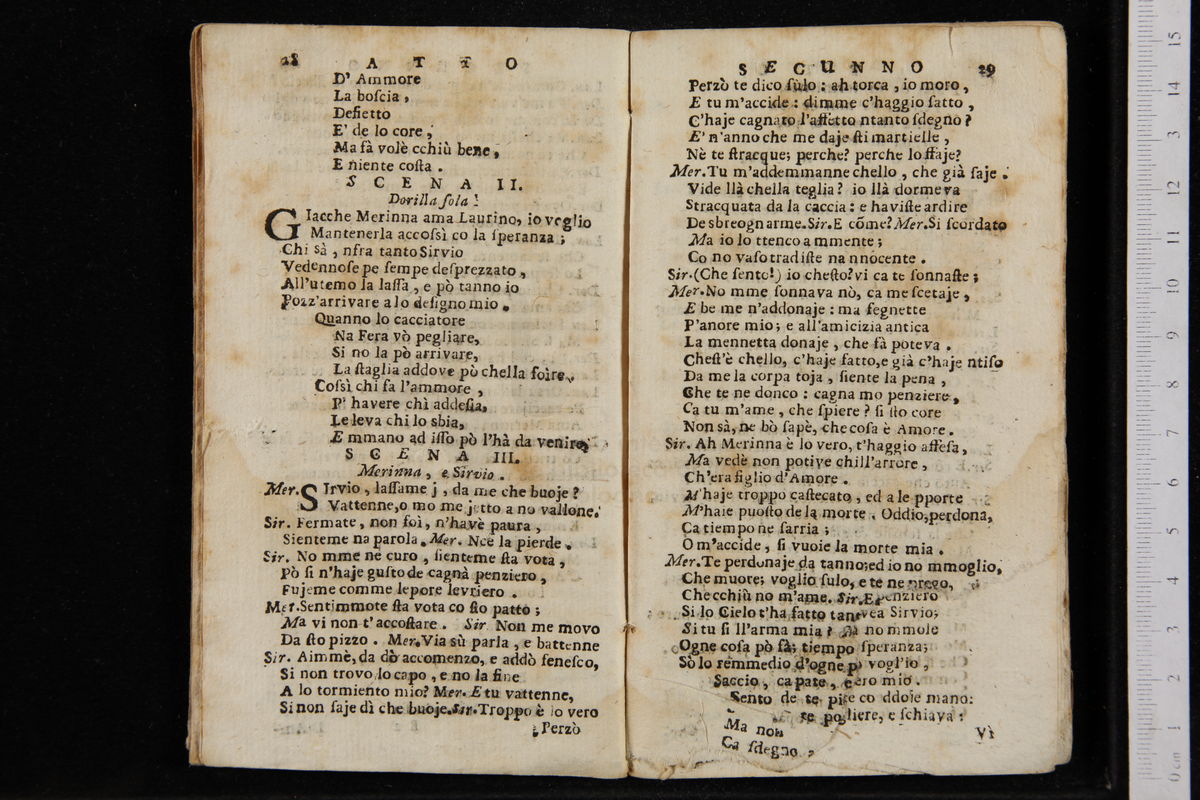 28 A T T O
D' Ammore
La boſcia,
Defietto
E' de lo core,
Ma fà volè cchiù bene,
E niente coſta.
S C E N A II.
Dorilla ſola!
GIacche Merinna ama Laurino, io veglio
Mantenerla accoſsì co la ſperanza;
Chi sà, nfra tanto Sirvio
Vedennoſe pe ſempe deſprezzato,
All'utemo la laſſa, e pò tanno io
Pozz'arrivare a lo deſigno mio.
Quanno lo cacciatore
Na Fera vò pegliare,
Si no la pò arrivare,
La ſtaglia addove pò chella foire,
Coſsì chi fa l'ammore,
P' havere chì addeſia,
Le leva chi lo sbia,
E mmano ad iſſo pò l'hà da venire;
S C E N A III.
Merinna, e Sirvio.
Mer. SIrvio, laſſame j, da me che buoje?
Vattenne, o mo me jetto a no vallone.
Sir. Fermate, non foì, n'havè paura,
Sienteme na parola. Mer. Nce la pierde.
Sir. No mme ne curo, ſienteme ſta vota,
Pò ſi n'haje guſto de cagnà penziero,
Fujeme comme lepore levriero.
Mer. Sentimmote ſta vota co ſto patto;
Ma vi non t'accoſtare. Sir. Non me movo
Da ſto pizzo. Mer. Via sù parla, e battenne
Sir. Aimmè, da dò accomenzo, e addò feneſco,
Si non trovo lo capo, e no la fine
A lo tormiento mio? Mer. E tu vattenne,
Si non ſaje dì che buoje. Sir. Troppo è lo vero
Perzò
S E C U N N O 29
Perzò te dico ſulo: ah torca, io moro,
E tu m'accide: dimme c'haggio fatto,
C'haje cagnato l'affetto ntanto ſdegno?
E' n'anno che me daje ſti martielle,
Nè te ſtracque; perche? perche lo ffaje?
Mer. Tu m'addemmanne chello, che già ſaje.
Vide llà chella teglia? io llà dormeva
Stracquata da la caccia: e haviſte ardire
De sbreognarme. Sir. E cõme? Mer. Si ſcordato
Ma io lo ttenco a mmente;
Co no vaſo tradiſte na nnocente.
Sir. (Che ſento!) io cheſto? vi ca te ſonnaſte;
Mer. No mme ſonnava nò, ca me ſcetaje,
E be me n'addonaje: ma fegnette
P'anore mio; e all'amicizia antica
La mennetta donaje, che fà poteva.
Cheſt'è chello, c'haje fatto, e già c'haje ntiſo
Da me la corpa toja, ſiente la pena,
Che te ne donco: cagna mo penziere,
Ca tu m'ame, che ſpiere? ſi ſto core
Non sà, ne bò ſapè, che coſa è Amore.
Sir. Ah Merinna è lo vero, t'haggio affeſa,
Ma vedè non potive chill'arrore,
Ch'era figlio d'Amore.
M'haje troppo caſtecato, ed a le pporte
M'haie puoſto de la morte. Oddio, perdona,
Ca tiempo ne ſarria;
O m'accide, ſi vuoie la morte mia.
Mer. Te perdonaje da tanno; ed io no mmoglio,
Che muore; voglio ſulo, e te ne prego,
Che cchiù no m'ame. Sir. E penziero
Si lo Cielo t'ha fatto Sirvio;
Si tu ſi ll'arma mia? no mmole
Ogne coſa pò fà; tiempo ſperanza;
Sò lo remmedio d'ogne vogl'io,
Saccio, ca pate, mio.
Sento de te co ddoie mano:
te pogliere, e ſchiava:
Ma non
Ca ſdegno,
Vì